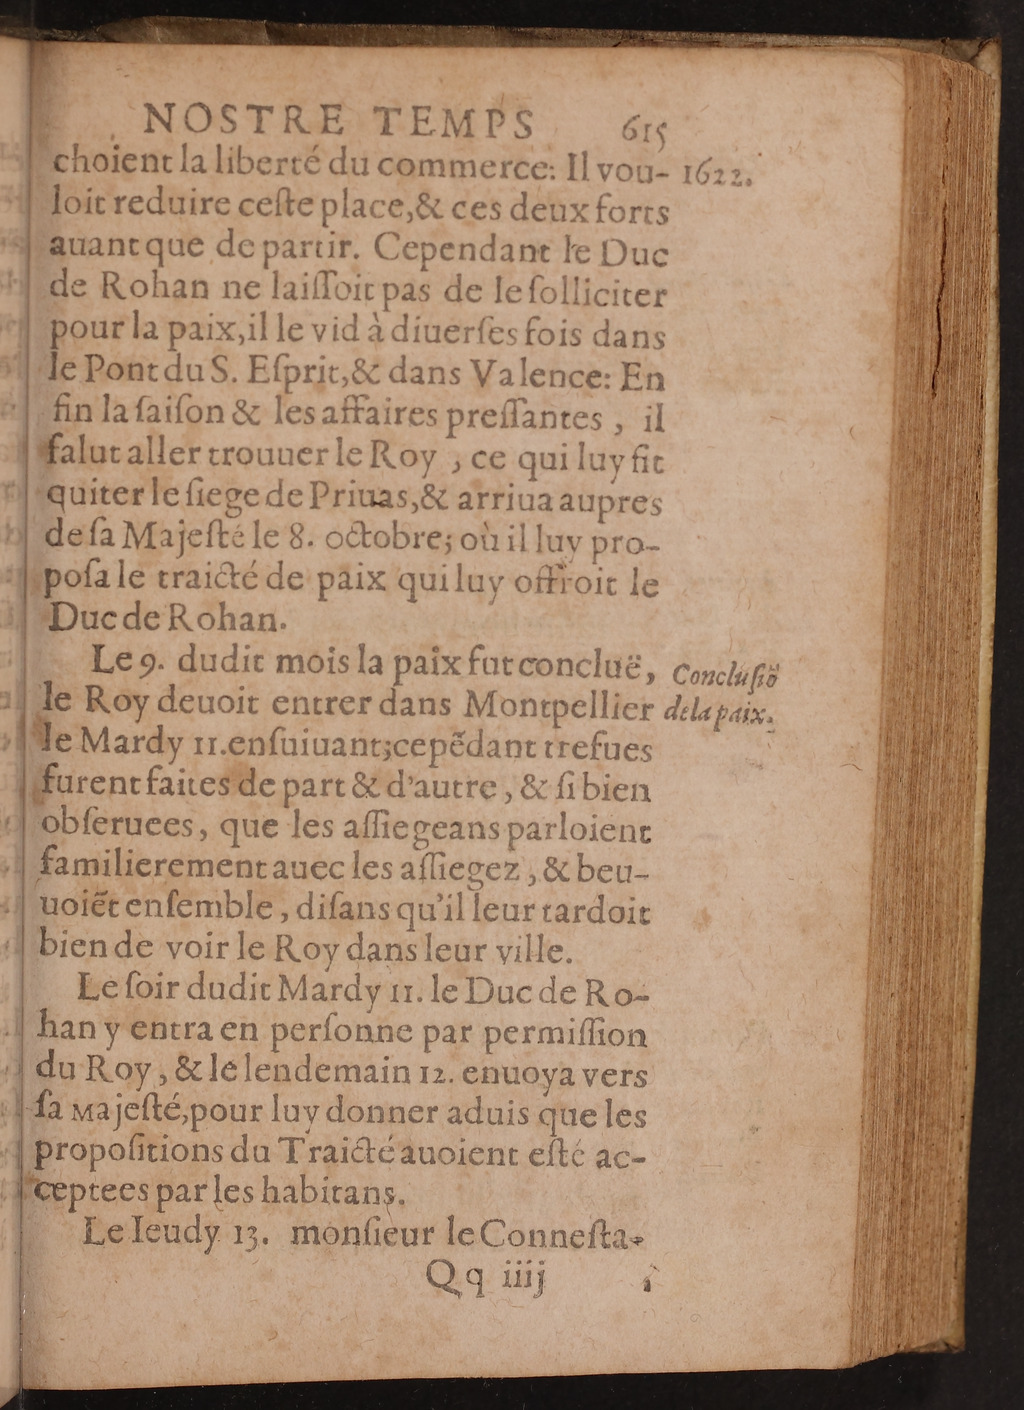 NOSTRE TEMPS 615
choient la liberté du commerce: Il vou- 1622.
loit reduire ceſte place,& ces deux forts
auant que de partir. Cependant le Duc
de Rohan ne laiſſoit pas de le ſolliciter
pour la paix,il le vid à diuerſes fois dans
le Pont du S. Eſprit,& dans Valence: En
fin la ſaiſon & les affaires preſſantes , il
falut aller trouuer le Roy , ce qui luy fit
quiter le ſiege de Priuas,& arriua aupres
de ſa Majeſté le 8. octobre; où il luy pro-
poſa le traicté de paix qui luy offroit le
Duc de Rohan.
Le 9. dudit mois la paix fut concluë, Concluſiõ
le Roy deuoit entrer dans Montpellier de la paix.
le Mardy 11.enſuiuant;cepẽdant treſues
furent faites de part & d'autre , & ſi bien
obſeruees, que les aſſiegeans parloient
familierement auec les aſſiegez , & beu-
uoiẽt enſemble , diſans qu'il leur tardoit
bien de voir le Roy dans leur ville.
Le ſoir dudit Mardy 11. le Duc de Ro-
han y entra en perſonne par permiſſion
du Roy , & le lendemain 12. enuoya vers
ſa Majeſté,pour luy donner aduis que les
propoſitions du Traicté auoient eſté ac-
ceptees par les habitans.
Le Ieudy 13. monſieur le Conneſta-
Qq iiij